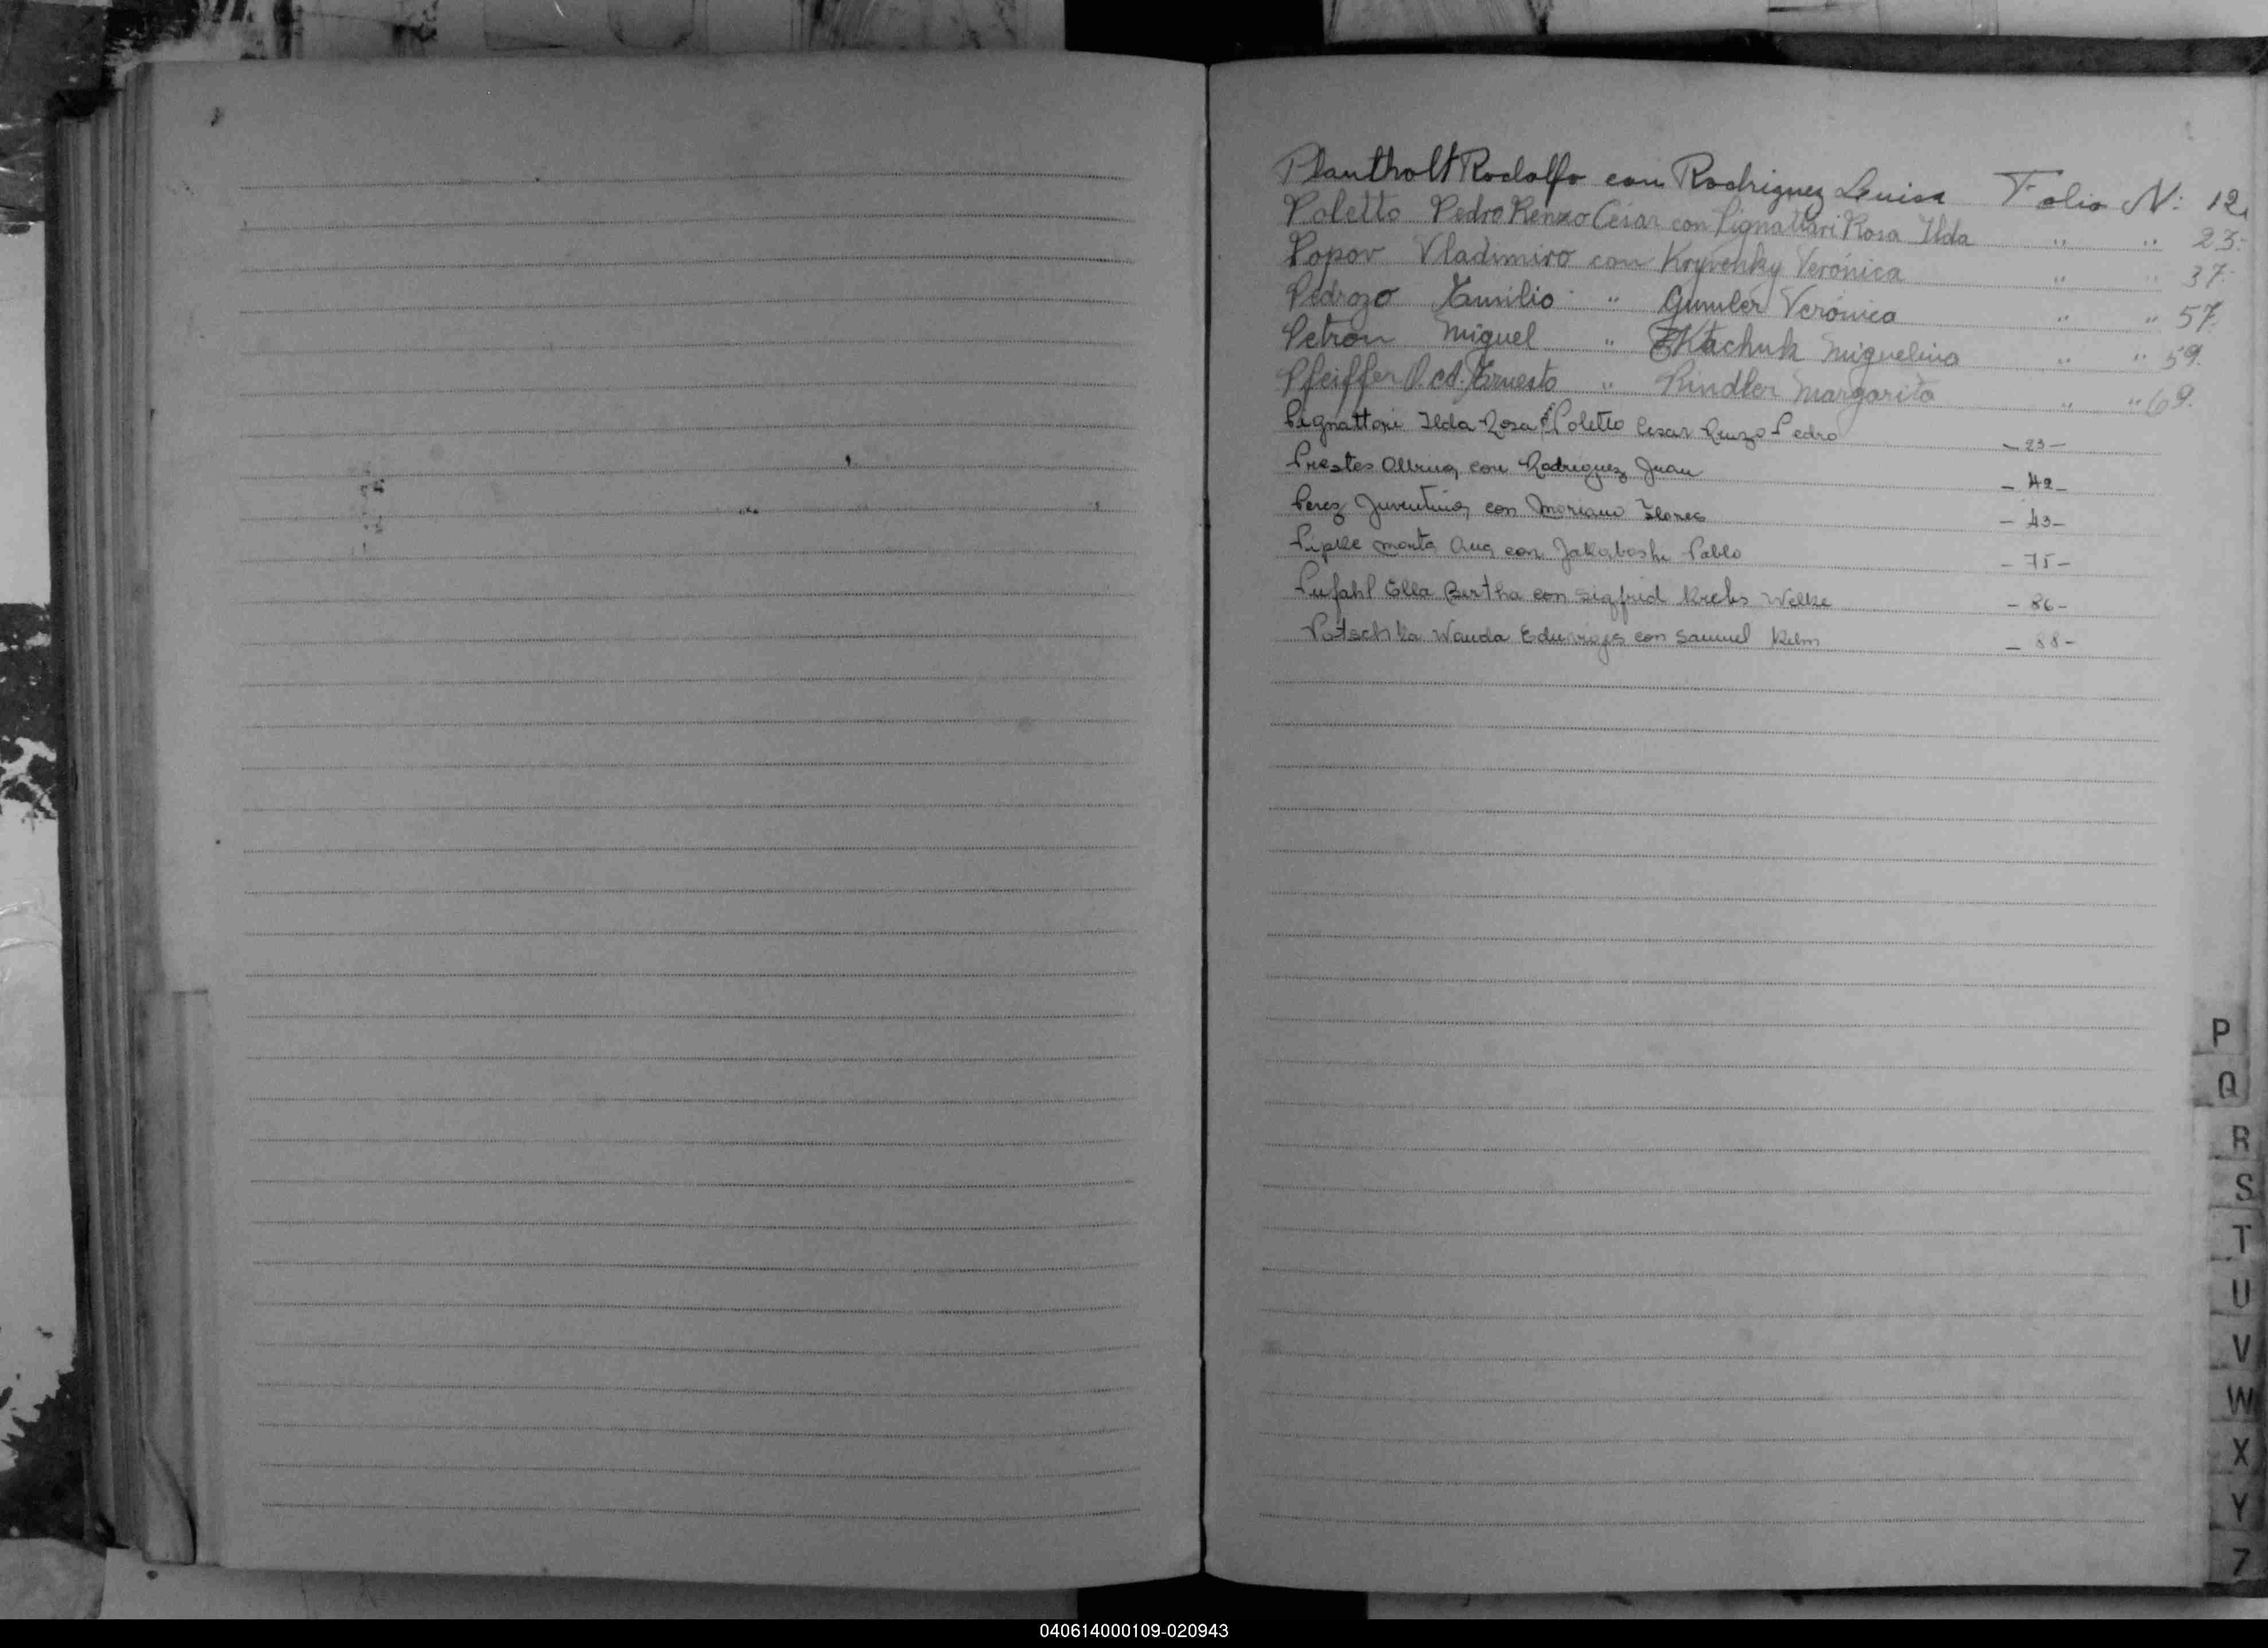 Plantholt Rodolfo con Rodriguez Luisa Folio N: 12.
Poletto Pedro Renzo César con Pignattari Rosa Ilda " " 23.-
Popov Vladimiro con Kryvenky Verónica " " 37.
Pedrozo Emilio " Gumler Verónica " " 57.
Petron Miguel " Tkachuk Miguelina " " 59.
Pfeiffer Ernesto " Rindler Margarita " " 69.
Pignattari Ilda Rosa Poletto Cesar Renzo Pedro - 23 -
Prestes con Rodriguez Juan - 42 -
Perez Juventina con Mariano Flores - 43 -
Pipke Marta Ana con Pablo - 75 -
Pufahl Ella Bertha con Sigfrid Krebs Welke - 86 -
Potschka Wanda Eduviges con Samuel Kelm - 88 -
P
Q
R
S
T
U
V
W
X
Y
Z
040614000109-020943